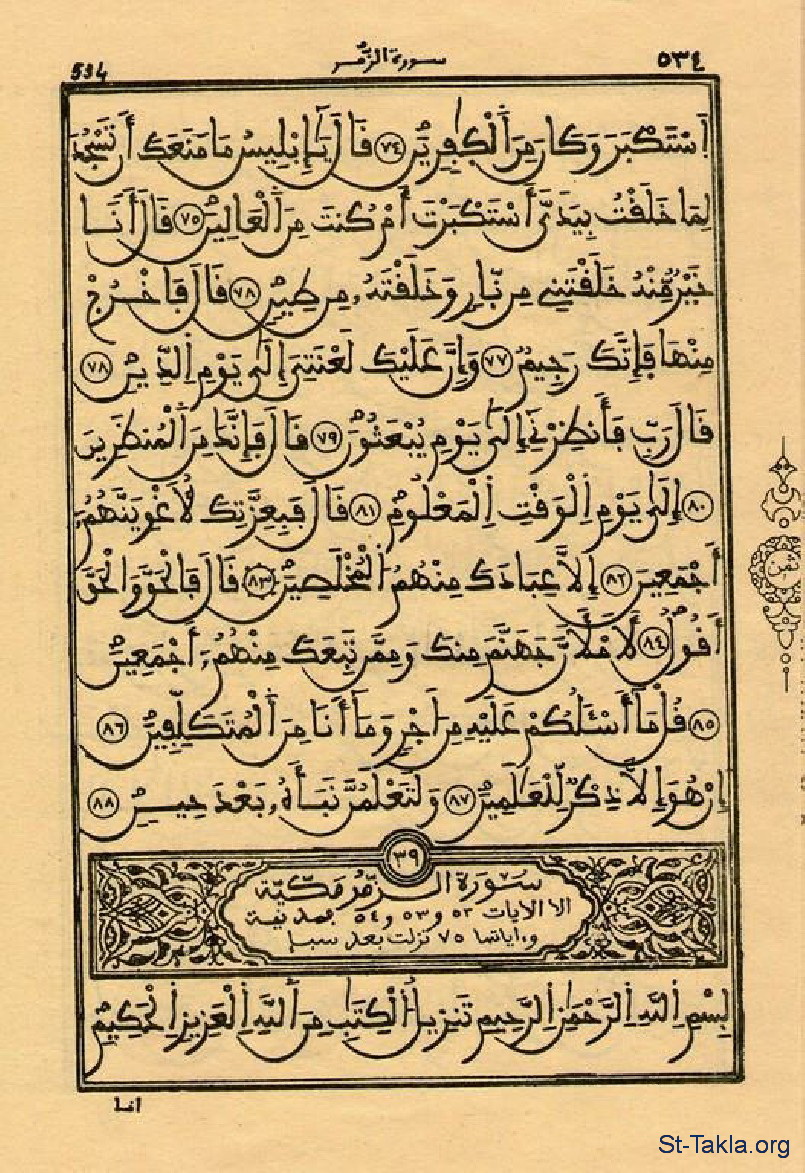 ٥٣٤ سورة الزُّمر 534
اَسْتَكْبَرَ وَكَانَ مِنَ اَلْكٰفِرِينَ ٧٤ قَالَ يَٰإِبْلِيسُ مَا مَنَعَكَ أَن تَسْجُدَ
لِمَا خَلَقْتُ بِيَدَيَّ أَسْتَكْبَرْتَ أَمْ كُنتَ مِنَ اَلْعَالِينَ ٧٥ قَالَ أَنَا
خَيْرٌ مِّنْهُ خَلَقْتَنِي مِن نّارٍ وَخَلَقْتَهُۥ مِن طِينٍ ٧٨ قَالَ فَاخْرُجْ
مِنْهَا فَإِنَّكَ رَجِيمٌ ٧٧ وَإِنَّ عَلَيْكَ لَعْنَتِيَ إِلَىٰ يَوْمِ اِلدِّينِ ٧٨
قَالَ رَبِّ فَأَنظِرْنِي إِلَىٰ يَوْمِ يُبْعَثُونَ ٧٩ قَالَ فَإِنَّكَ مِنَ اَلْمُنظَرِينَ
٨٠ إِلَىٰ يَوْمِ اِلْوَقْتِ اِلْمَعْلُومِ ٨١ قَالَ فَبِعِزَّتِكَ لَأُغْوِيَنَّهُمُۥ
أَجْمَعِينَ ٨٢ إِلاَّ عِبَادَكَ مِنْهُمُ اُلْمُخْلَصِينَ ٨٣ قَالَ فَالْحَقَّ وَالْحَقَّ
أَقُولُ ٨٤ لَأَمْلَأَنَّ جَهَنَّمَ مِنكَ وَمِمَّن تَبِعَكَ مِنْهُمُۥ أَجْمَعِينَ
٨٥ قُلْ مَا أَسْـَٔلُكُمْ عَلَيْهِ مِنَ اَجْرٍ وَمَا أَنَا مِنَ اَلْمُتَكَلِّفِينَ ٨٦
إِنْ هُوَ إِلاَّ ذِكْرٌ لِّلْعَٰلَمِينَ ٨٧ وَلَتَعْلَمُنَّ نَبَأَهُۥ بَعْدَ حِينٍ ٨٨
ثمن
٣٩
سورة الزمر مكية
الا الايات ٥٢ و٥٣ و٥٤ فمدنية
وءاياتها ٧٥ نزلت بعد سبإ
بِسْمِ اِللَّهِ اِلرَّحْمَٰنِ اِلرَّحِيمِ تَنزِيلُ اُلْكِتَٰبِ مِنَ اَللَّهِ اِلْعَزِيزِ اِلْحَكِيمِ
انا
St-Takla.org